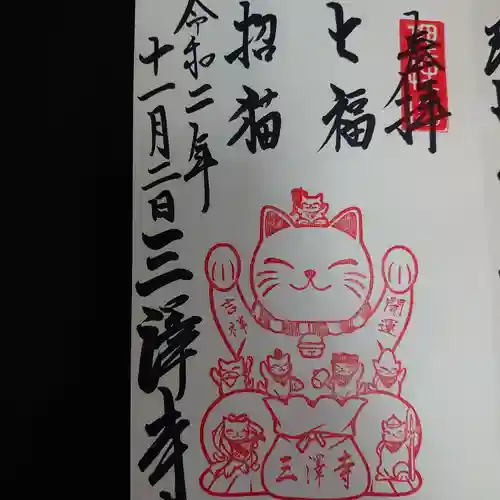 奉拝
七福
招猫
令和二年
十一月二日
三澤寺
吉祥
開運
三澤寺